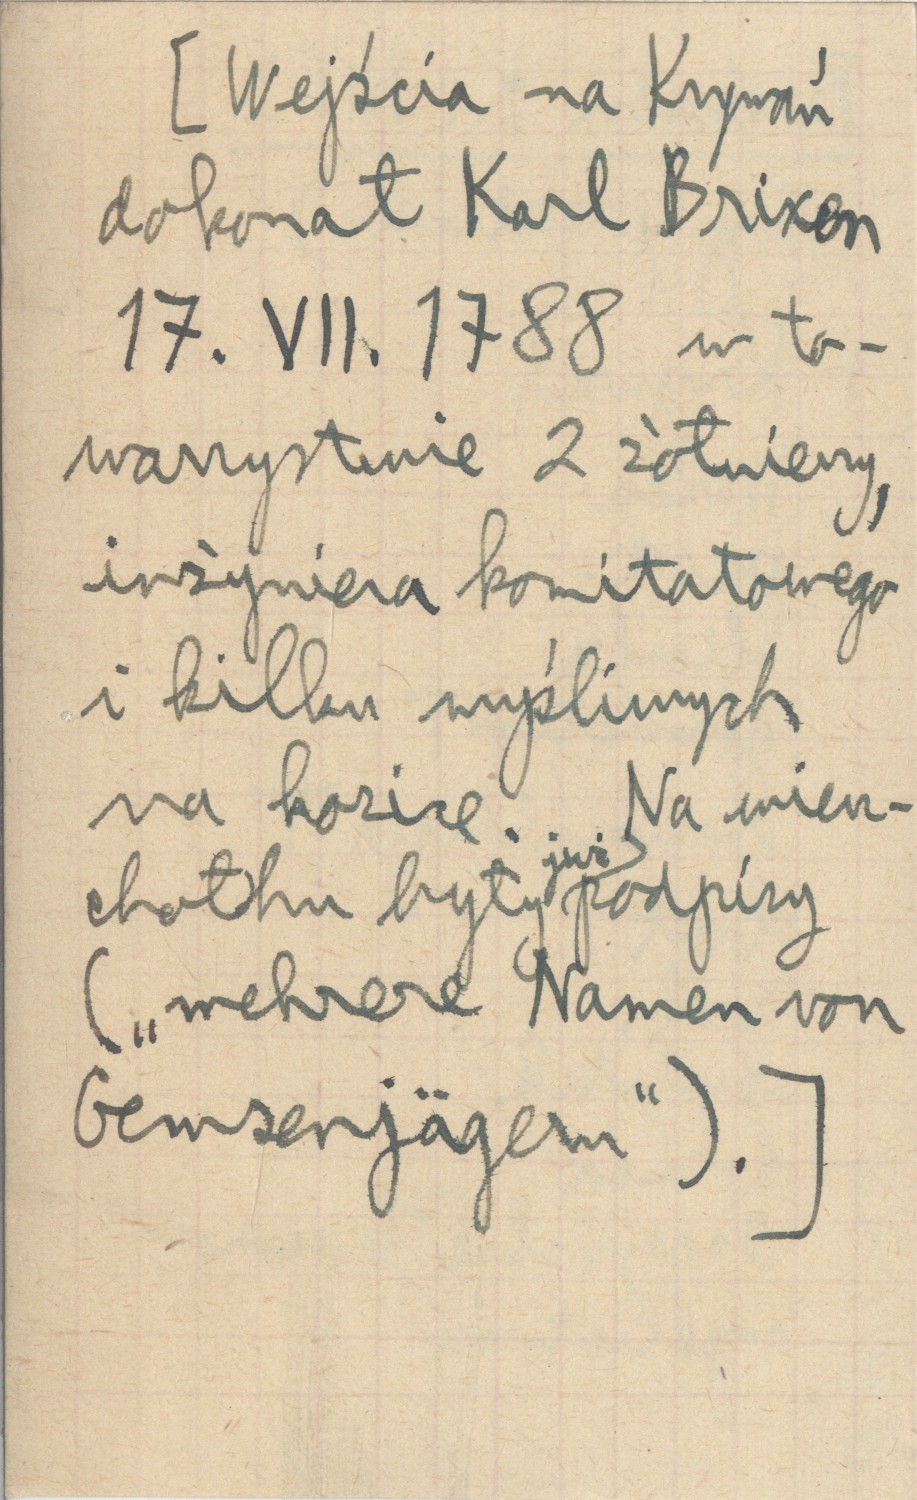 [Wejścia na Krywań
dokonał Karl Brixen
17. VII. 1788 w to-
warzystwie 2 żołnierzy,
inżyniera komitatowego
i kilku myśliwych
na kozice. Na wierz-
chołku były już podpisy
(„mehrere Namen von
Gemsenjägern“).]